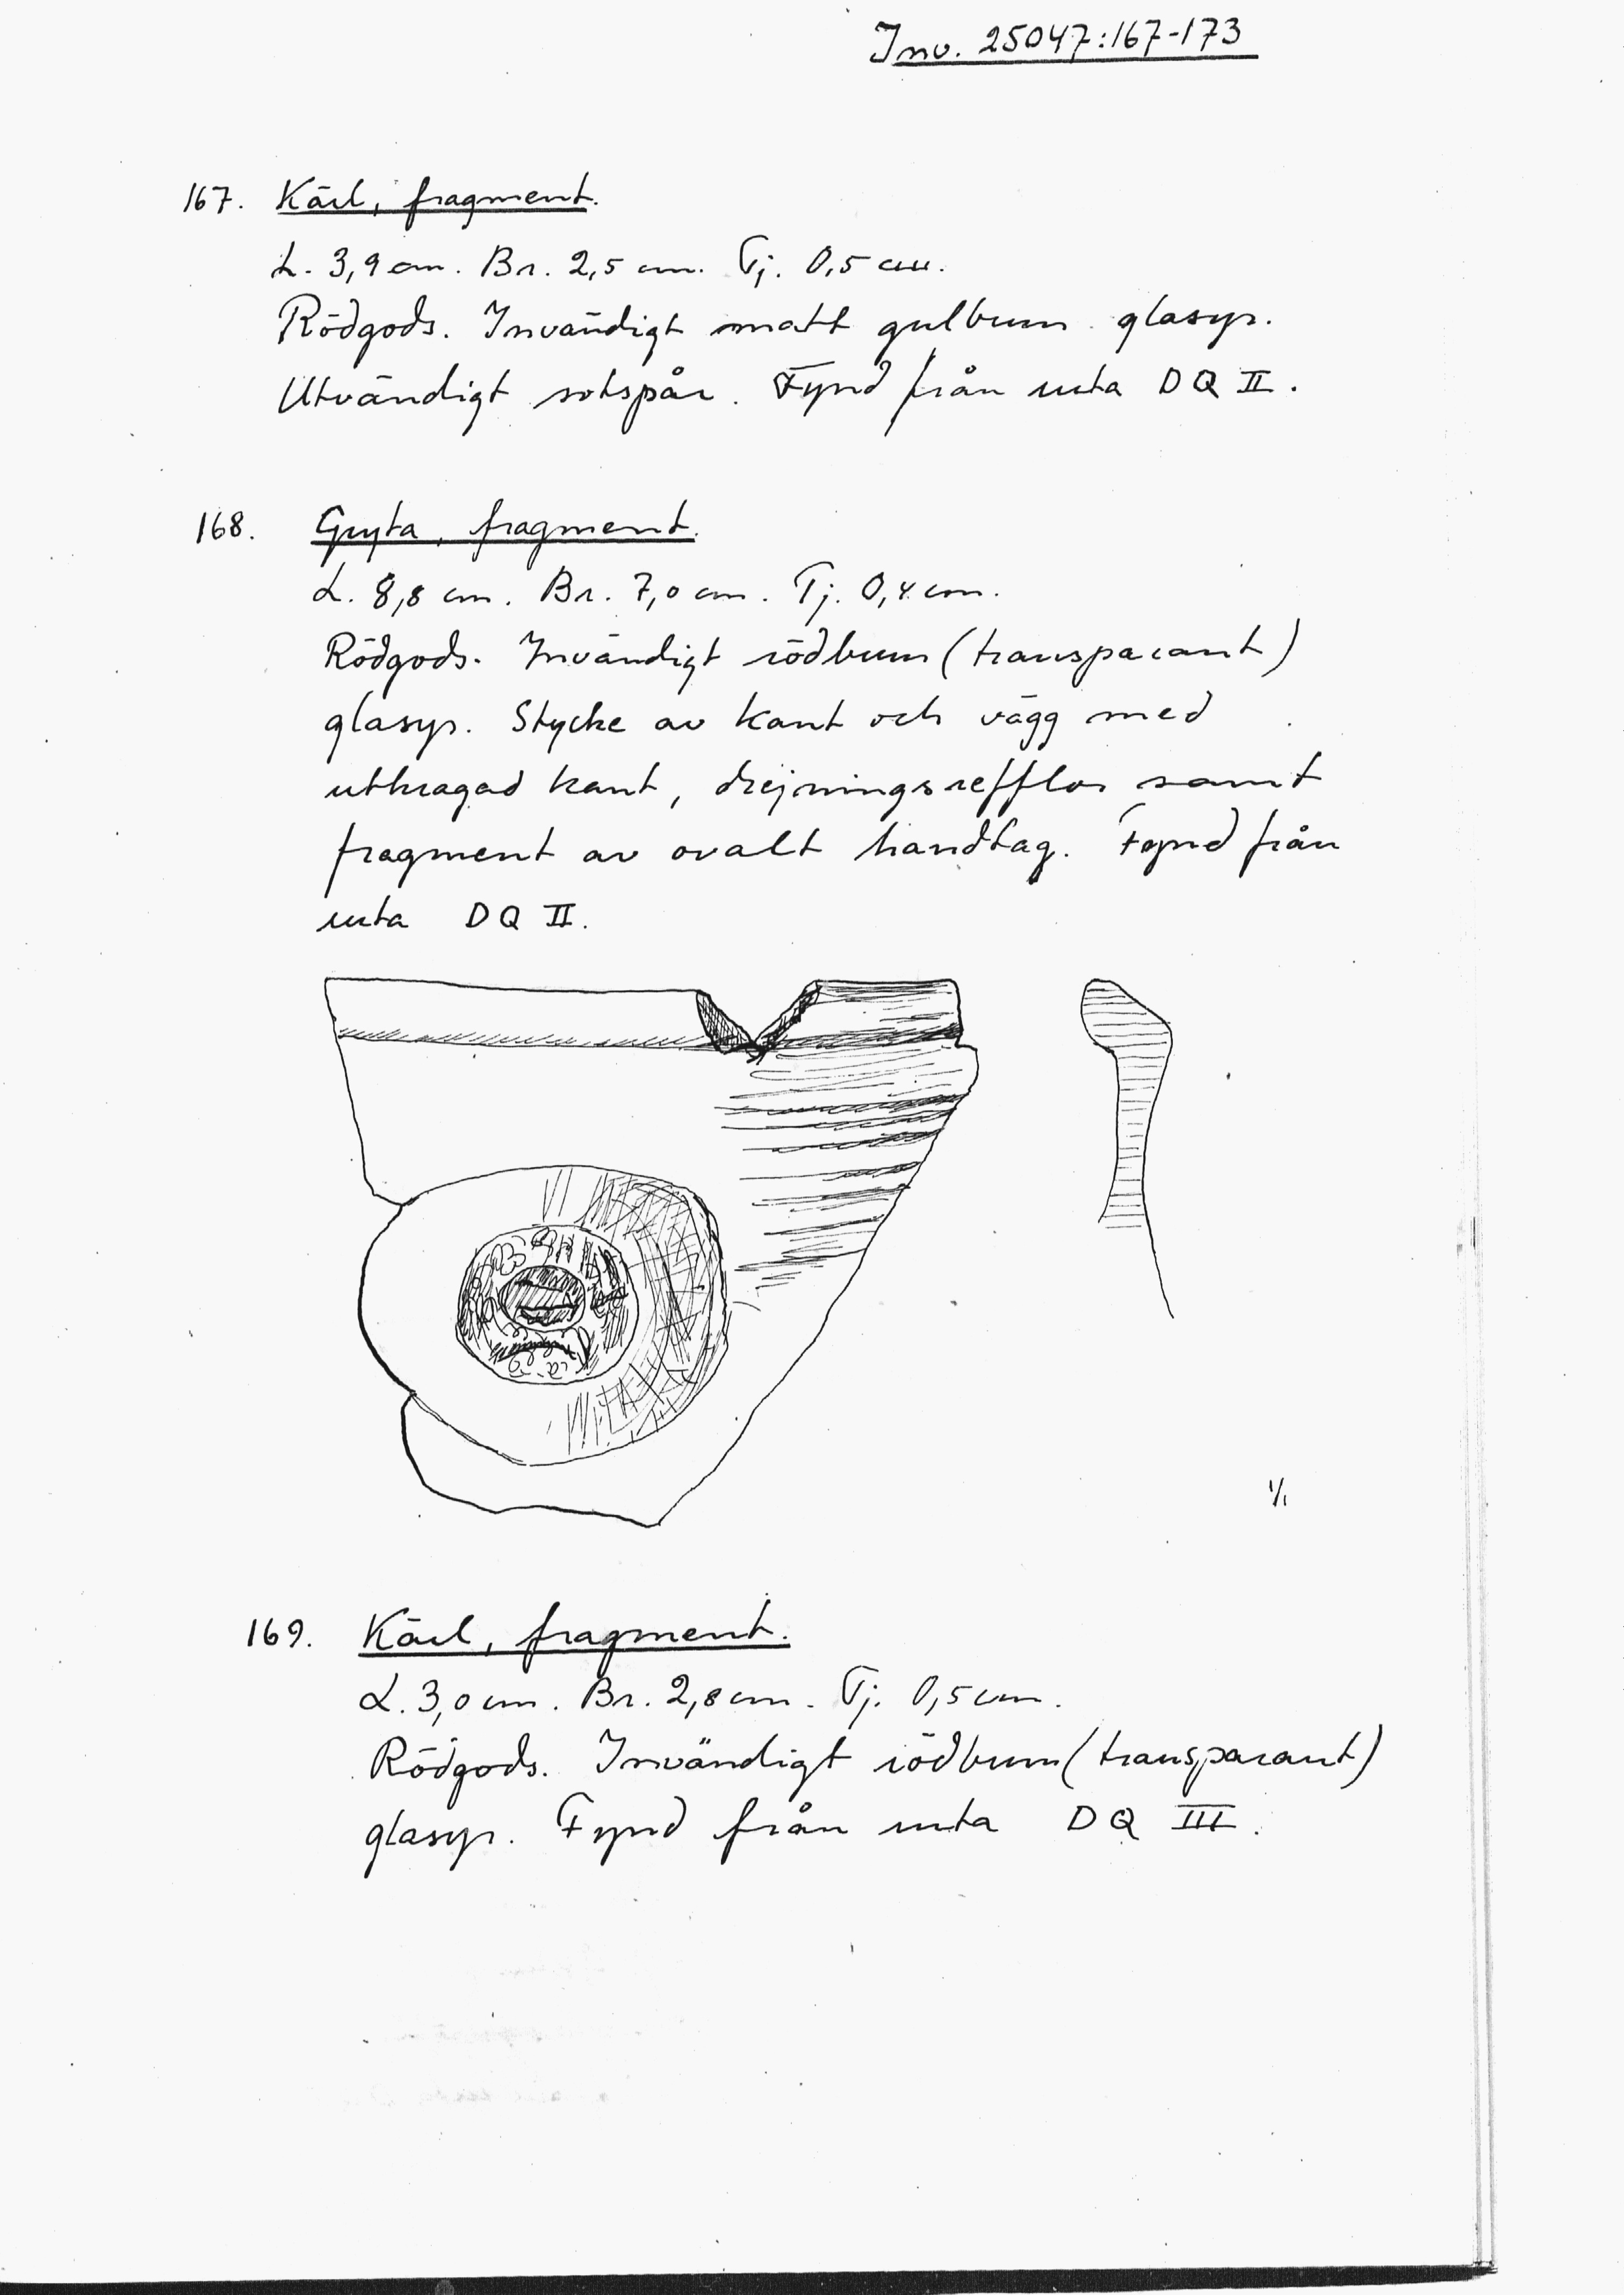 Inv. 25047:167-173
167. Kärl, fragment.
L. 3,9 cm. Br. 2,5 cm. Tj. 0,5 cm.
Rödgods. Invändigt matt gulbrun glasyr.
Utvändigt sotspår. Fynd från ruta DQ II.
168. Gryta, fragment.
L. 8,8 cm. Br. 7,0 cm. Tj. 0,4 cm.
Rödgods. Invändigt rödbrun (transparant)
glasyr. Stycke av kant och vägg med
utkragad kant, drejningsrefflor samt
fragment av ovalt handtag. Fynd från
ruta DQ II.
1/1
169. Kärl, fragment.
L. 3,0 cm. Br. 2,8 cm. Tj. 0,5 cm.
Rödgods. Invändigt rödbrun (transparant)
glasyr. Fynd från ruta DQ III.